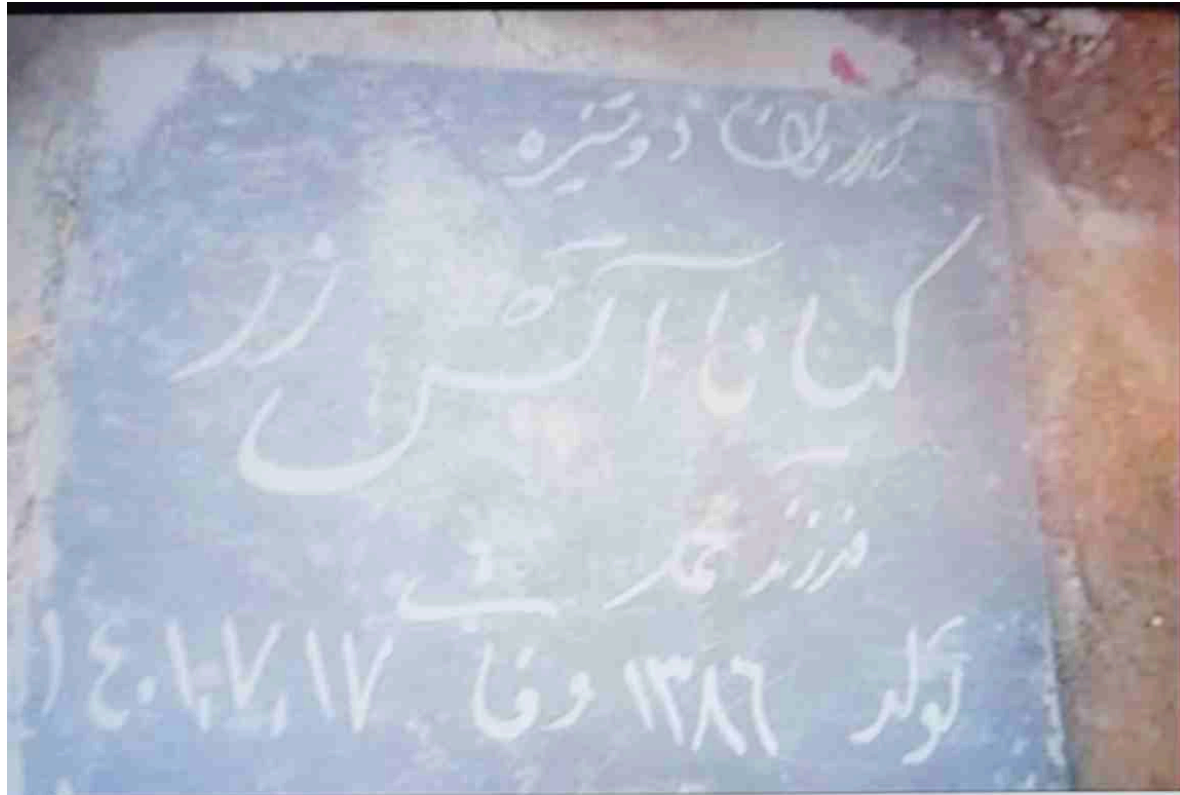 شادروان دوشیزه
کیانا آتش زر
فرزند محمد
تولد ۱۳۸۶ وفات ۱۴۰۱,۷,۱۷